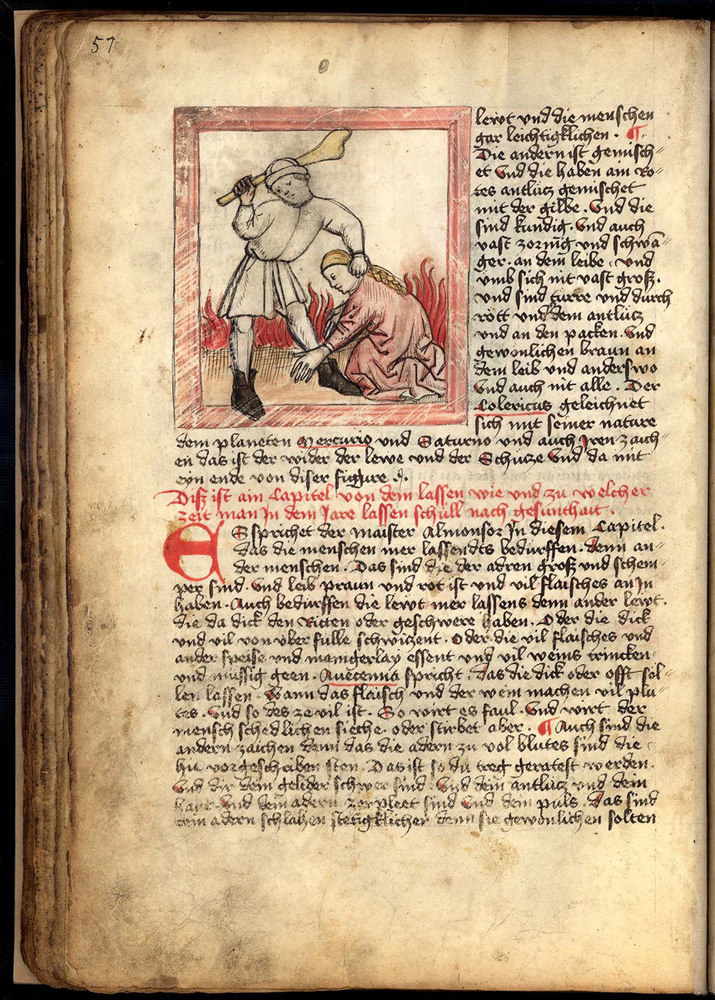 57
lewt vnd die menschen
gar leichtigklichen · ¶
Die andern ist gemisch=
et Vnd die haben am Ro=
tes antlücz gemischet
mit der gilbe · Vnd die
sind kundig · Vnd auch
vast zornig vnd schwa=
ger · an dem leibe · vnd
vmb sich nit vast groß ·
vnd sind turre vnd durch
rött vnd dem antlücz
vnd an den packen · Vnd
gewonlichen braun an
dem leib vnd anderswo
Vnd auch nit alle · Der
Colericus geleichnet
sich mit seiner nature
dem planeten Mercurio vnd Saturno vnd auch Iren zaich=
en das ist der wider der lewe vnd der Schücze Vnd da mit
eyn ende von diser figure ·
Diß ist am Capitel von dem lassen wie vnd zu welcher
zeit man In dem Jare lassen schüll nach gesunthait ·
ES sprichet der maister Almonsor In diesem Capitel ·
das die menschen mer lassendts bedürffen · denn an=
der menschen · Das sind die der adren groß vnd schem=
per sind · Vnd leib praun vnd rot ist vnd vil flaisches an In
haben · Auch bedürffen die lewt mer lassens denn ander lewt ·
die da dick den Ritten oder geschwere haben · Oder die dick
vnd vil von vber fulle schwiczent · Oder die vil flaisches vnd
ander speise vnd mangerlay essent vnd vil weins trincken
vnd müssig geen · Auecenna spricht · das die dick oder offt sol=
len lassen · Wann das flaisch vnd der wein machen vil plu=
tes · Vnd so des ze vil ist · So wirt es faul · Vnd wirt der
mensch schedlichen sieche · oder stirbet aber · ¶ Auch sind die
andern zaichen denn das die adern zu vol blutes sind die
hie vorgeschriben sten · Das ist so du treg geratest werden ·
Vnd dir dein gelider schwer sind · Vnd dein antlücz vnd dein
haut · Vnd dein adern zerpleet sind Vnd dein puls · das sind
dein adern schlahen stetigklicher denn sie gewonlichen solten